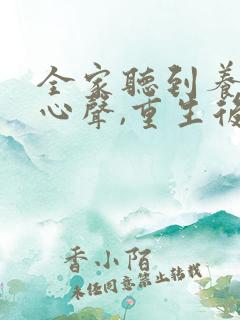 全家聽到養
心聲,重生後
香小陌
未經同意禁止轉載